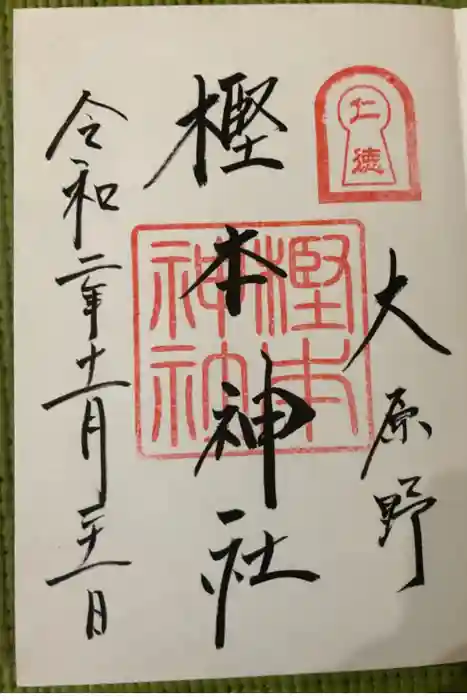 仁徳
大原野
樫本神社
樫本
神社
令和二年十一月二十一日